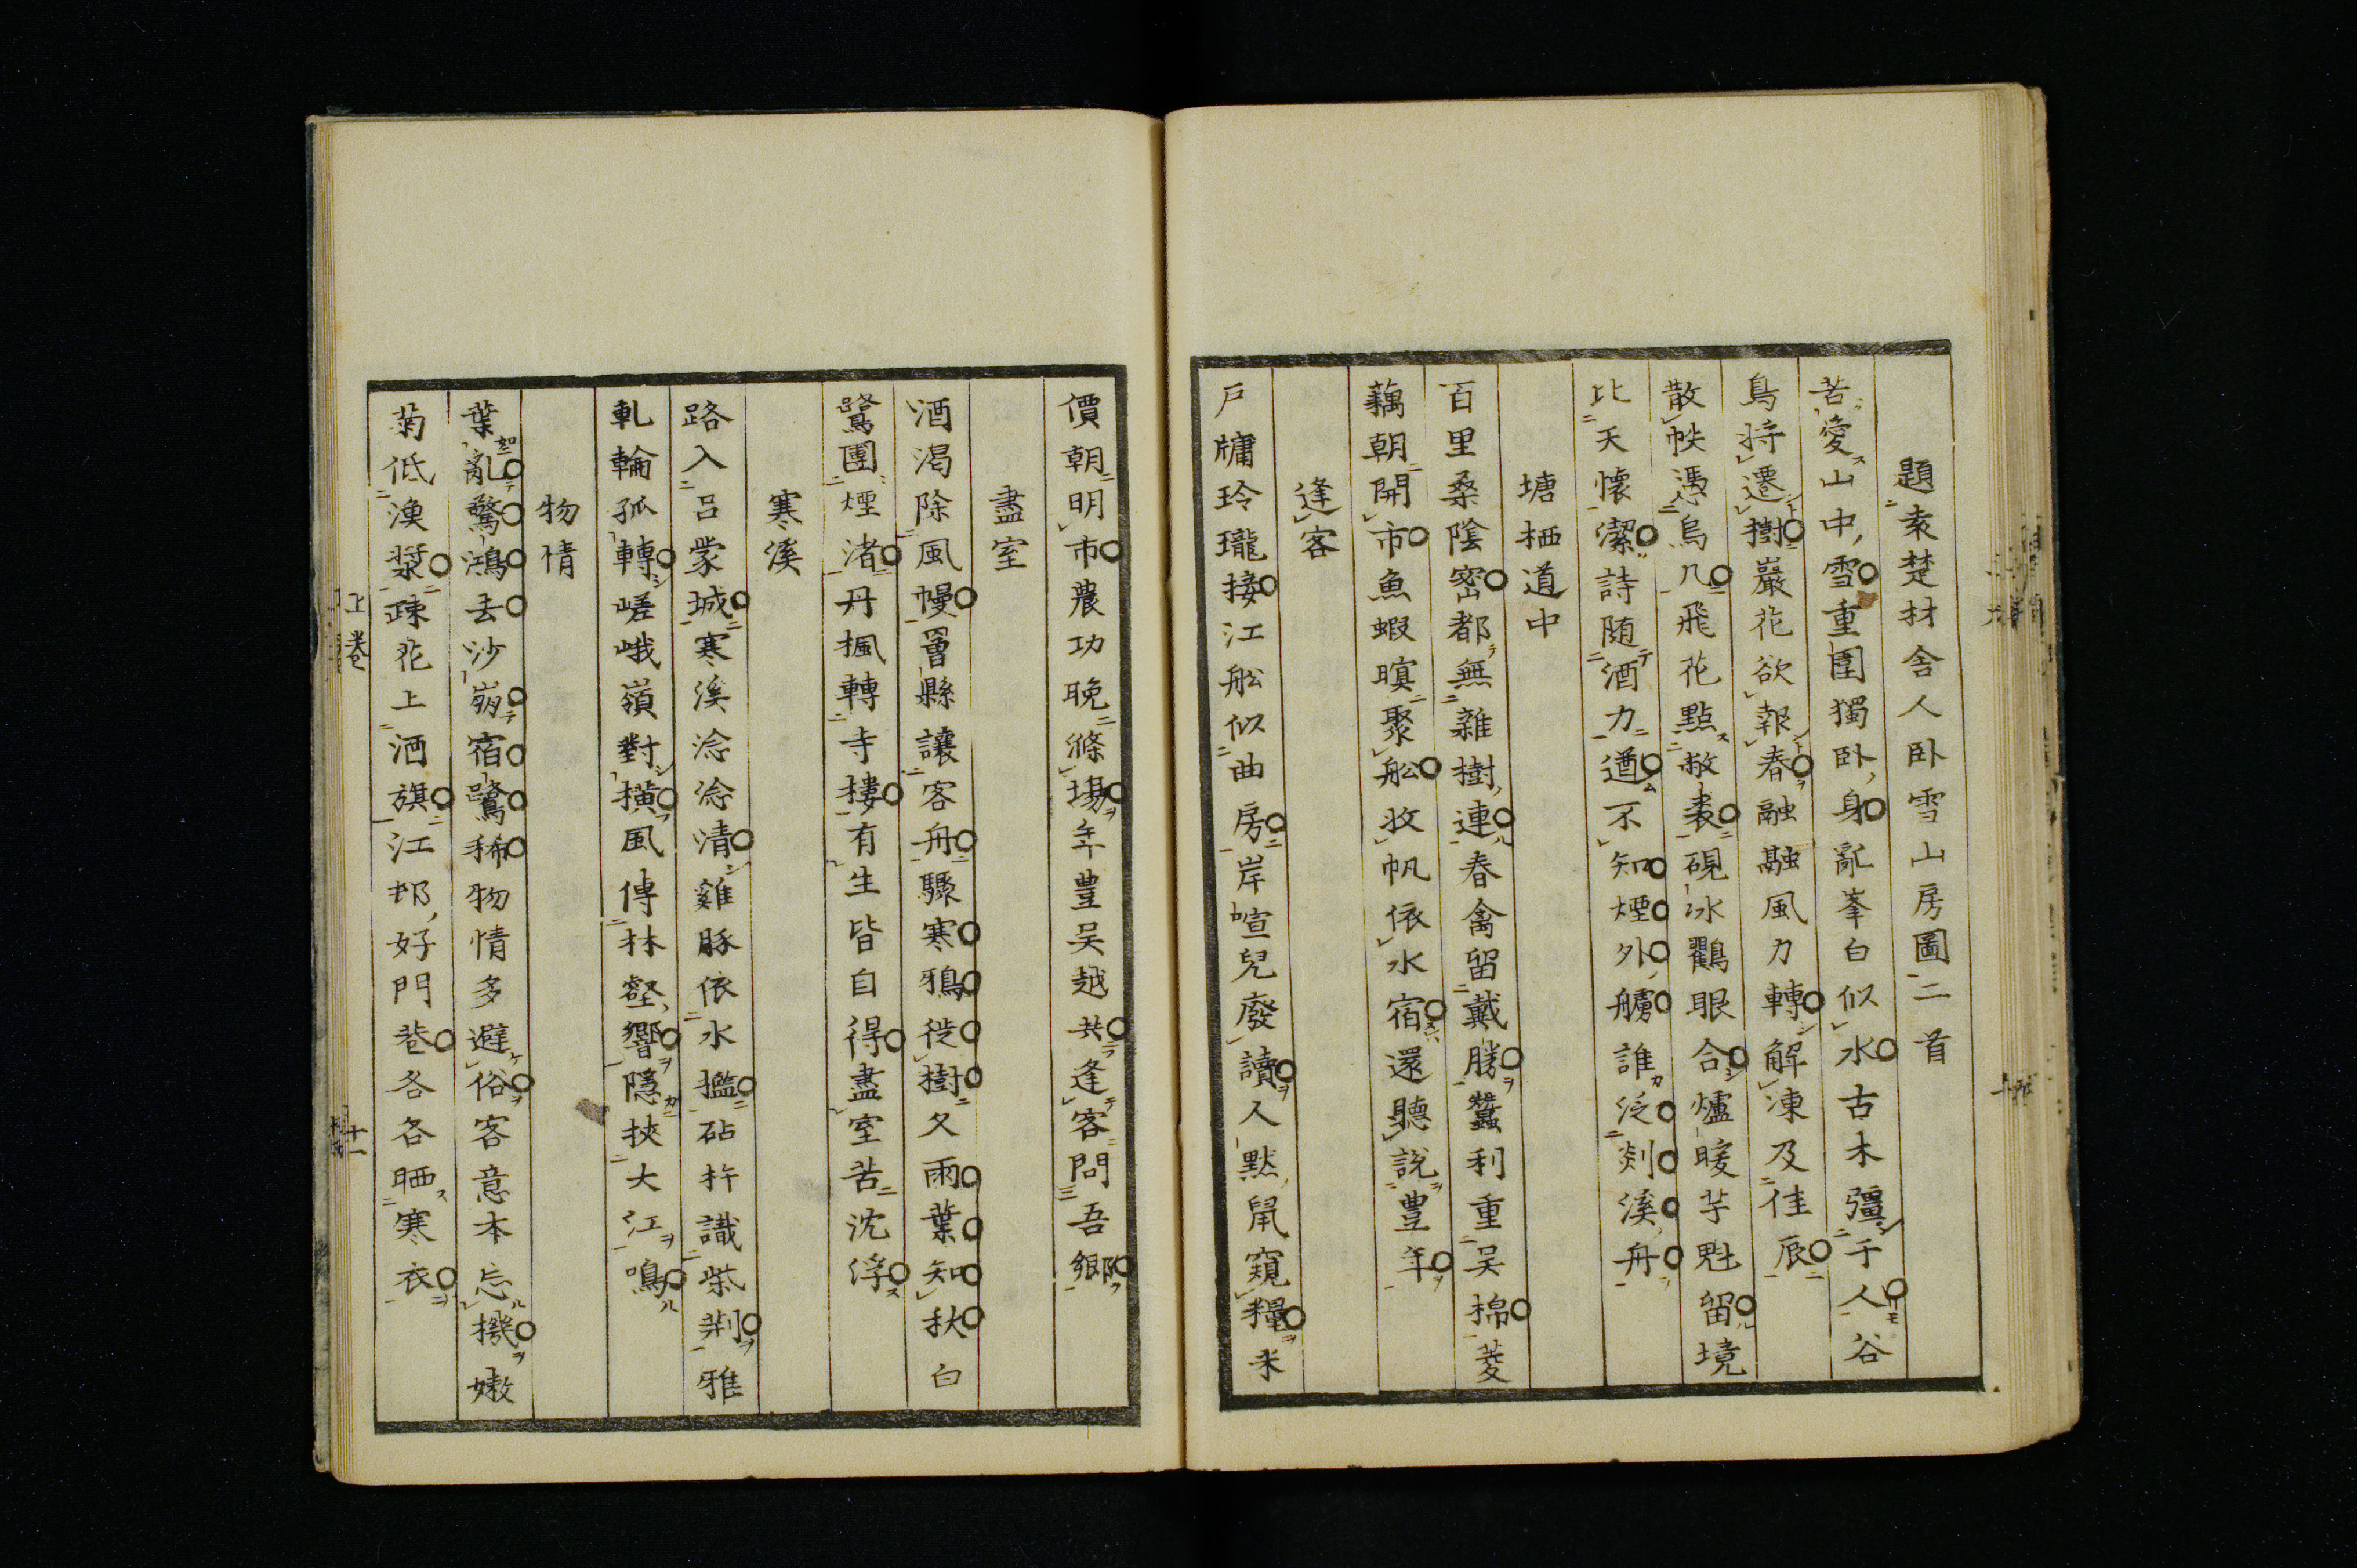 題袁楚材舎人卧雪山房圖二首
苦愛山中雪重圍獨卧身亂峯白似水古木彊于人谷
鳥将遷樹巖花欲報春融融風力轉解凍及佳辰
散帙憑烏几飛花點敝裘硯冰鸜眼合爐暖芋魁留境
比天懐潔詩随酒力遒不知煙外艣誰泛剡溪舟
塘栖道中
百里桑陰密都無雜樹連春禽留戴勝蠶利重吴棉菱
藕朝開市魚蝦暝聚舩收帆依水宿還聴說豊年
逢客
戸牗玲瓏接江舩似曲房岸喧兒廢讀人黙鼠窺糧米
價朝明市農功晚滌場年豊吴越共逢客問吾鄉
盡室
酒渴除風幔罾縣讓客舟驟寒鴉徙樹久雨葉知秋白
鷺團煙渚丹楓轉寺樓有生皆自得盡室苦沈浮
寒溪
路入吕蒙城寒溪淰淰清雞豚依水檻砧杵識柴荆雅
軋輪孤轉嵯峨嶺對横風傳林壑響隠挾大江鳴
物情
葉亂驚鴻去沙崩宿鷺稀物情多避俗客意本忘機嫩
菊低漁槳疎花上酒旗江邨好門巷各各晒寒衣
上巻
十一